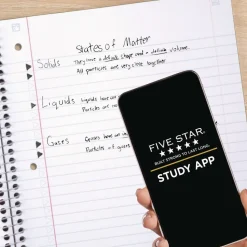 States of Matter
Solids
They have a definite shape and a definite volume.
All particles are very close together
Liquids
Liquids have
Particles
Gases
Gases have
Particles of gases
FIVE STAR.
BUILT STRONG TO LAST LONG.
STUDY APP